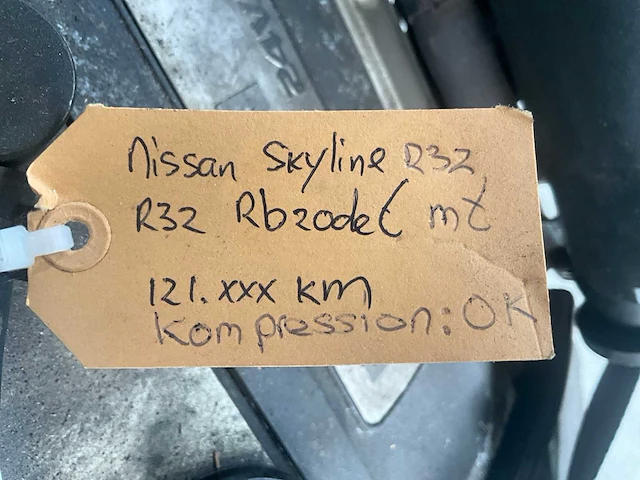 Nissan Skyline R32
R32 Rb20det mt
121.xxx km
Kompression: OK